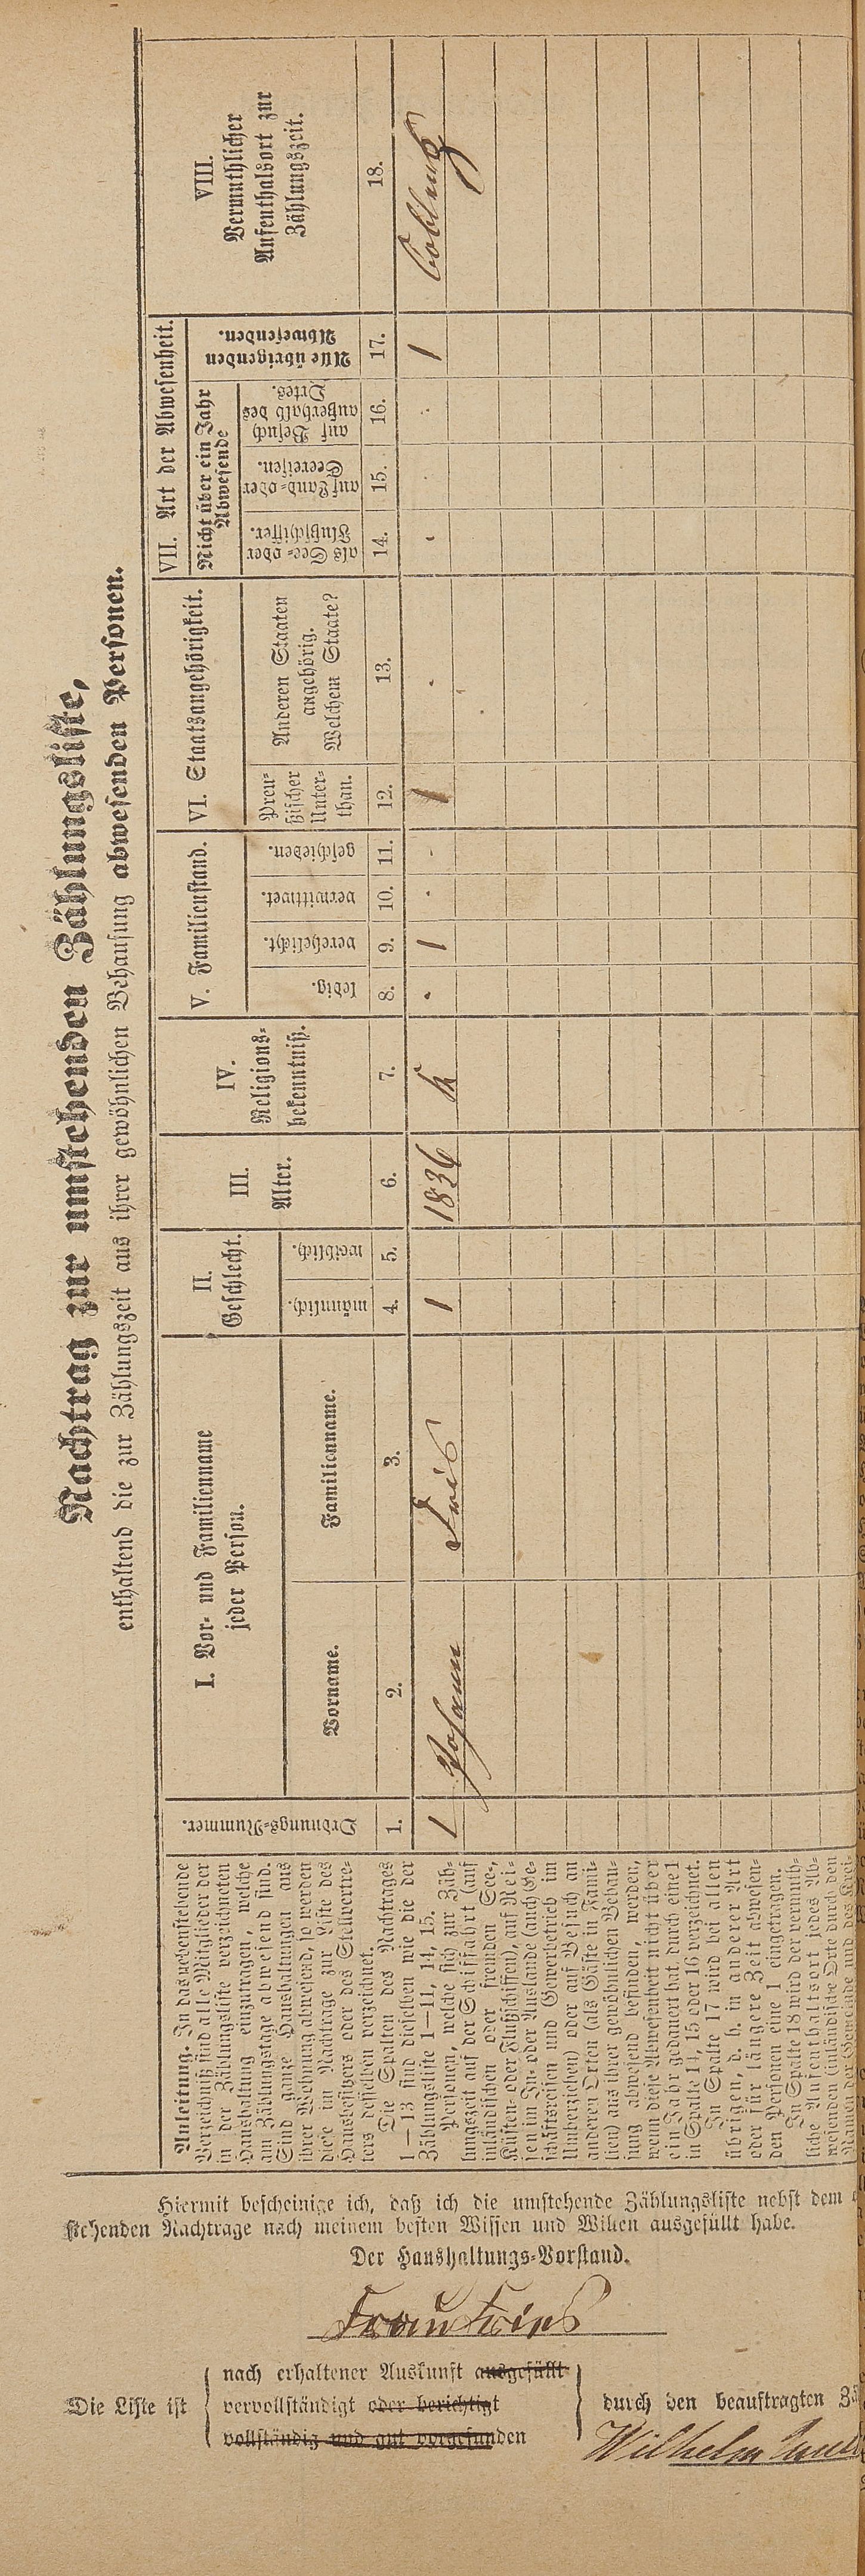 Nachtrag zur umstehenden Zählungsliste,
enthaltend die zur Zählungszeit aus ihrer gewöhnlichen Behausung abwesenden Personen.
Anleitung. In das nebenstehende
Verzeichniß sind alle Mitglieder der
in der Zählungsliste verzeichneten
Haushaltung einzutragen, welche
am Zählungstage abwesend sind.
Sind ganze Haushaltungen aus
ihrer Wohnung abwesend, so werden
diese im Nachtrage zur Liste des
Hausbesitzers oder des Stellvertre-
ters desselben verzeichnet.
Die Spalten des Nachtrages
1—13 sind dieselben wie die der
Zählungsliste 1—11, 14, 15.
Personen, welche sich zur Zäh-
lungszeit auf der Schifffahrt (auf
inländischen oder fremden See-,
Küsten- oder Flußschiffen), auf Rei-
sen im In- oder Auslande (auch Ge-
schäftsreisen und Gewerbetrieb im
Umherziehen) oder auf Besuch an
anderen Orten (als Gäste in Fami-
lien) aus ihrer gewöhnlichen Behau-
sung abwesend befinden, werden,
wenn diese Abwesenheit nicht über
ein Jahr gedauert hat, durch eine 1
in Spalte 14, 15 oder 16 verzeichnet.
In Spalte 17 wird bei allen
übrigen, d. h. in anderer Art
oder für längere Zeit abwesen-
den Personen eine 1 eingetragen.
In Spalte 18 wird der vermuth-
liche Aufenthaltsort jedes Ab-
wesenden (inländische Orte durch den
Namen der Gemeinde und des Krei-
Ordnungs-Nummer.
I. Vor- und Familienname
jeder Person.
Vorname.
Familienname.
II.
Geschlecht.
männlich.
weiblich.
III.
Alter.
IV.
Religions-
bekenntniß.
V. Familienstand.
ledig.
verehelicht.
verwittwet.
geschieden.
VI. Staatsangehörigkeit.
Preu-
ßischer
Unter-
than.
Anderen Staaten
angehörig.
Welchem Staate?
VII. Art der Abwesenheit.
Nicht über ein Jahr
Abwesende
als See- oder
Flußschiffer.
auf Land- oder
Seereisen.
auf Besuch
außerhalb des
Ortes.
Alle übrigenden
Abwesenden.
VIII.
Vermuthlicher
Aufenthalsort zur
Zählungszeit.
1. 2. 3. 4. 5. 6. 7. 8. 9. 10. 11. 12. 13. 14. 15. 16. 17. 18.
1 Johann 1 1836 k 1 1 1 Coblenz
Hiermit bescheinige ich, daß ich die umstehende Zählungsliste nebst dem
stehenden Nachtrage nach meinem besten Wissen und Willen ausgefüllt habe.
Der Haushaltungs-Vorstand.
Frau
Die Liste ist
nach erhaltener Auskunft ausgefüllt
vervollständigt oder berichtigt
vollständig und gut vorgefunden
durch den beauftragten
Wilhelm